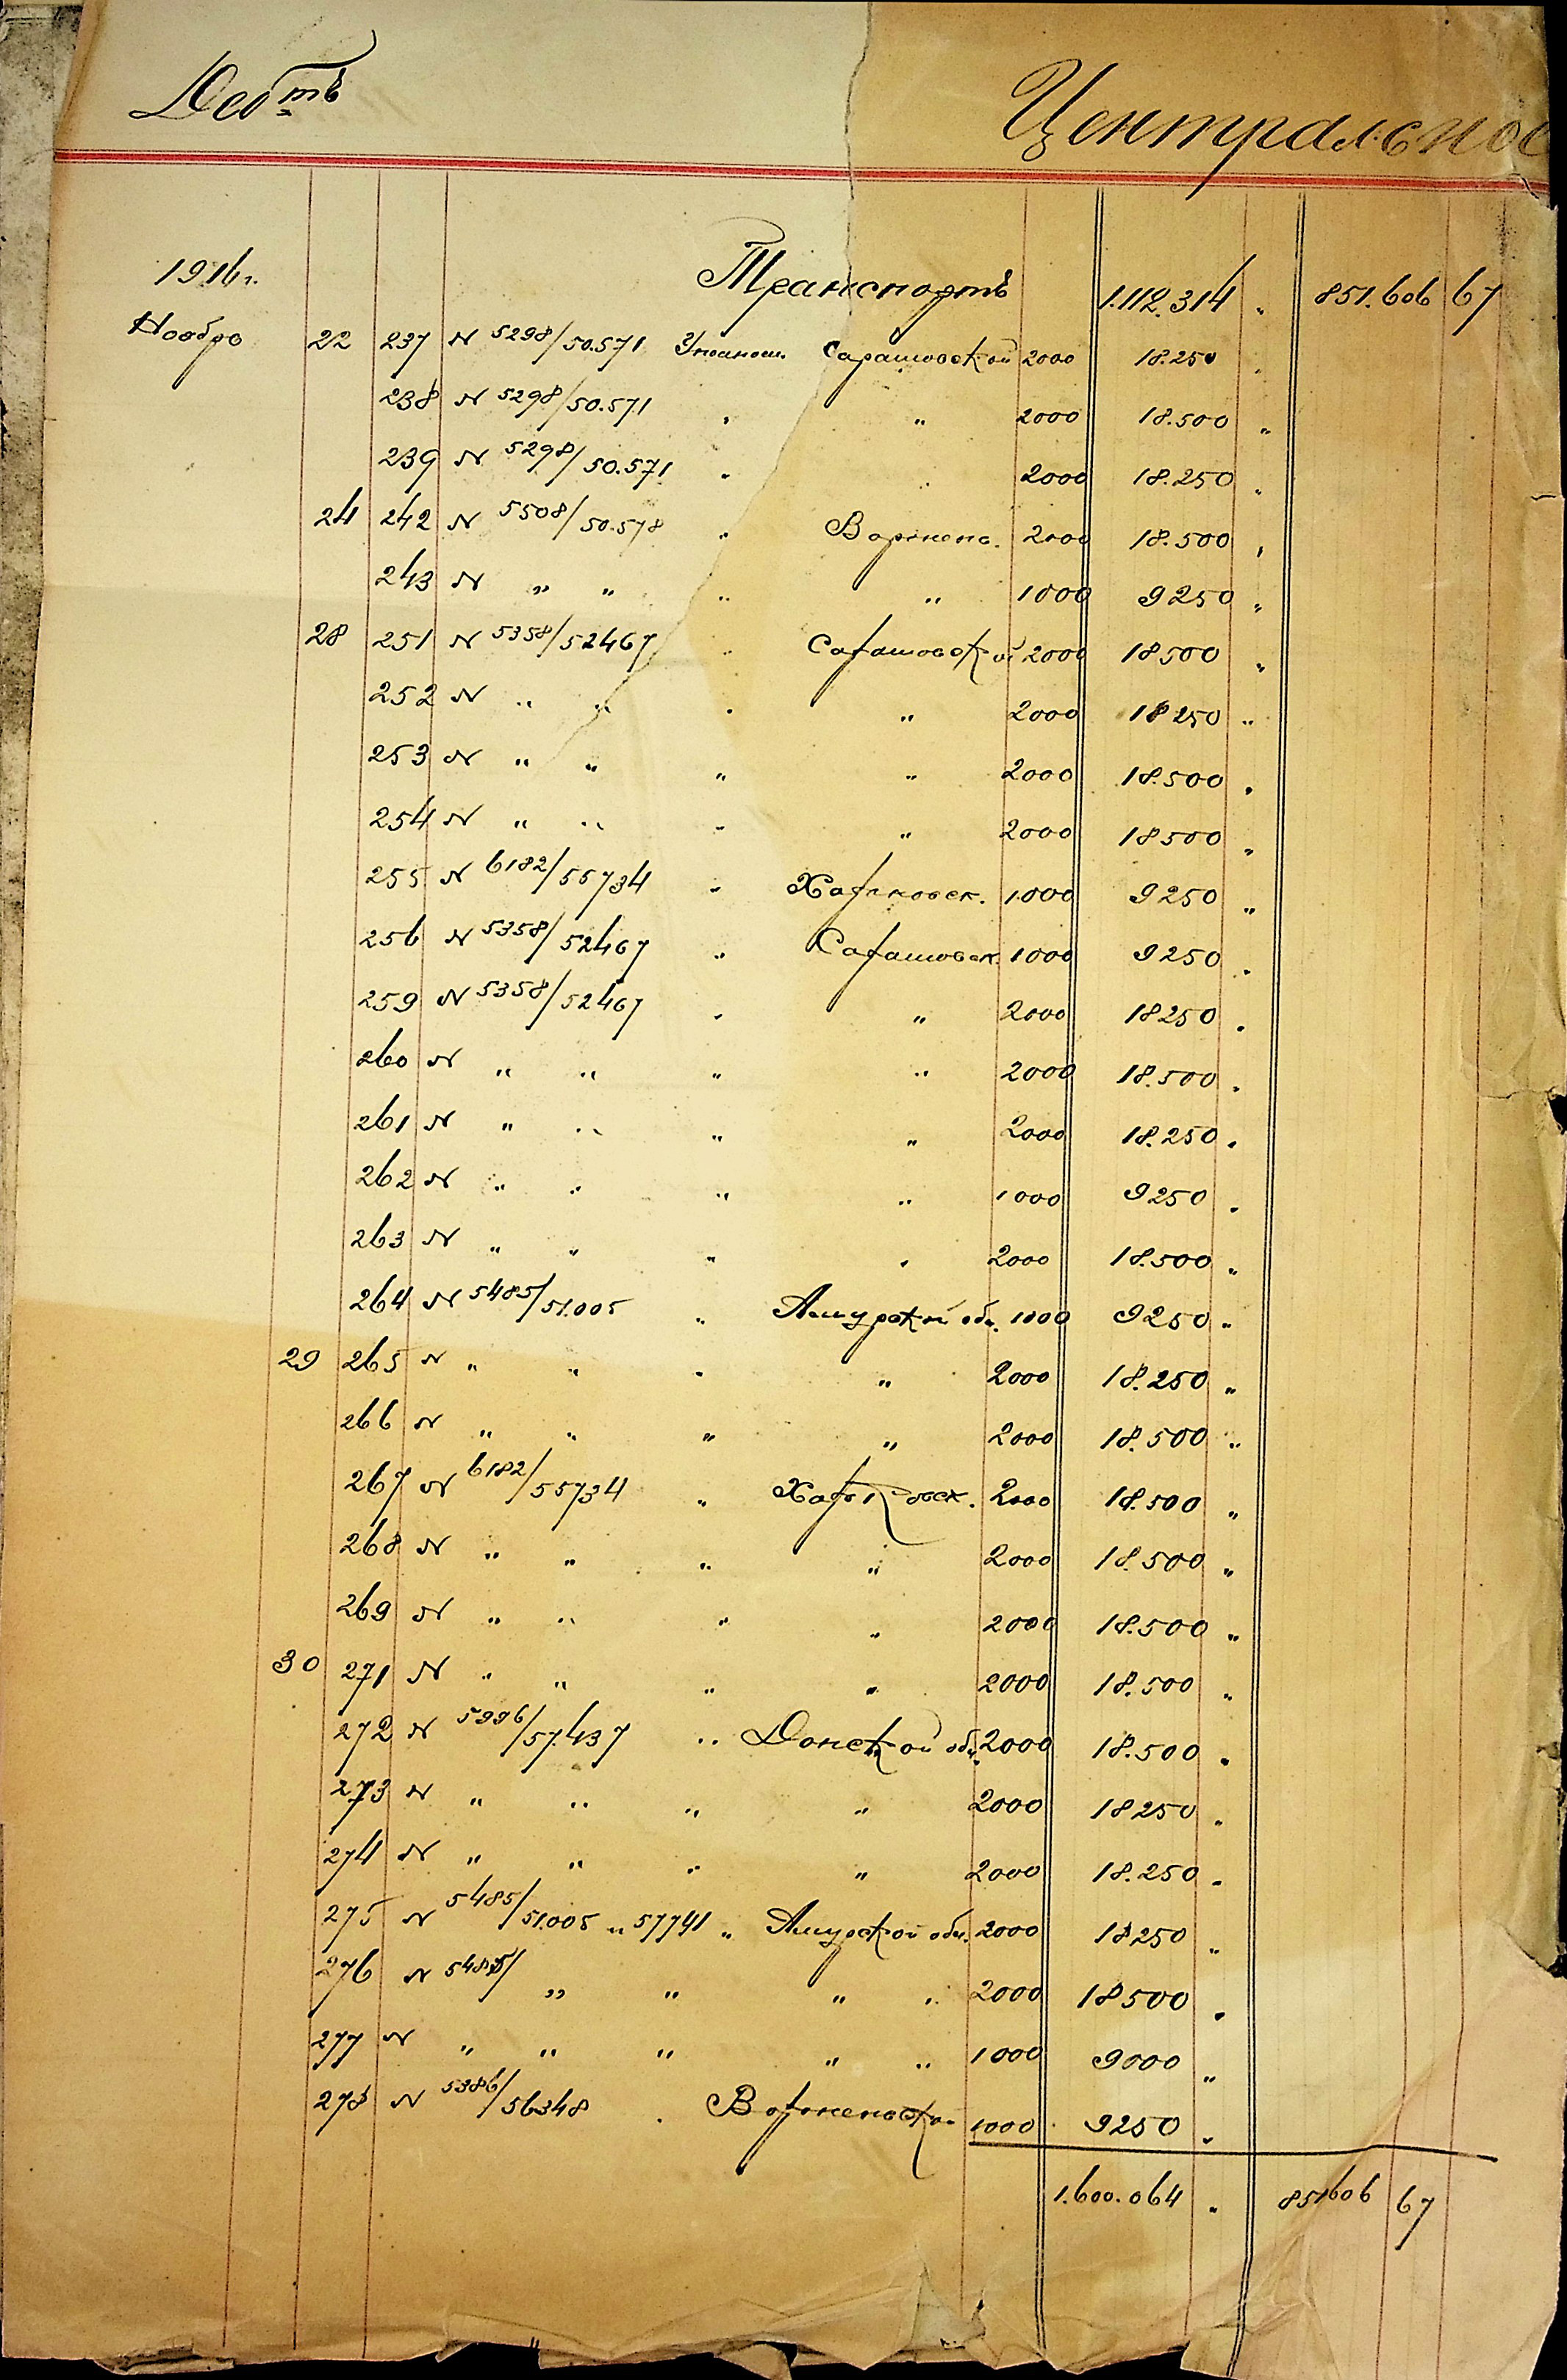 Дебтъ Центральное
1916г. Транспортъ 1.112.314 „ 851.606 67
Ноября 22 237 N 5298/50.571 Саратовской 2000 18.250 „
238 N 5298/50.571 „ „ 2000 18.500 „
239 N 5298/50.571 „ „ 2000 18.250 „
24 242 N 5508/50.578 „ Воронеж. 2000 18.500 „
243 N „ „ „ „ 1000 9250 „
28 251 N 5358/52467 „ Саратовской 2000 18500 „
252 N „ „ „ „ 2000 18250 „
253 N „ „ „ „ 2000 18.500 „
254 N „ „ „ „ 2000 18500 „
255 N 6182/55734 „ Харьковск. 1.000 9250 „
256 N 5358/52467 „ Саратовск. 1000 9250 „
259 N 5358/52467 „ „ 2000 18250 „
260 N „ „ „ „ 2000 18.500 „
261 N „ „ „ „ 2000 18.250 „
262 N „ „ „ „ 1000 9250 „
263 N „ „ „ „ 2000 18.500 „
264 N 5485/51.005 „ Амурской обл. 1000 9250 „
29 265 N „ „ „ „ 2000 18.250 „
266 N „ „ „ „ 2000 18.500 „
267 N 6182/55734 „ Харьковск. 2000 18.500 „
268 N „ „ „ „ 2000 18.500 „
269 N „ „ „ „ 2000 18.500 „
30 271 N „ „ „ „ 2000 18.500 „
272 N 5996/57.437 „ Донской обл. 2000 18.500 „
273 N „ „ „ „ 2000 18250 „
274 N „ „ „ „ 2000 18.250 „
275 N 5485/51.005 и 57741 „ Амурской обл. 2000 18250 „
276 N 5485/ „ „ „ „ 2000 18500 „
277 N „ „ „ „ „ 1000 9000 „
278 N 5386/56348 „ Воронежской 1000 9250 „
1.600.064 „ 851606 67